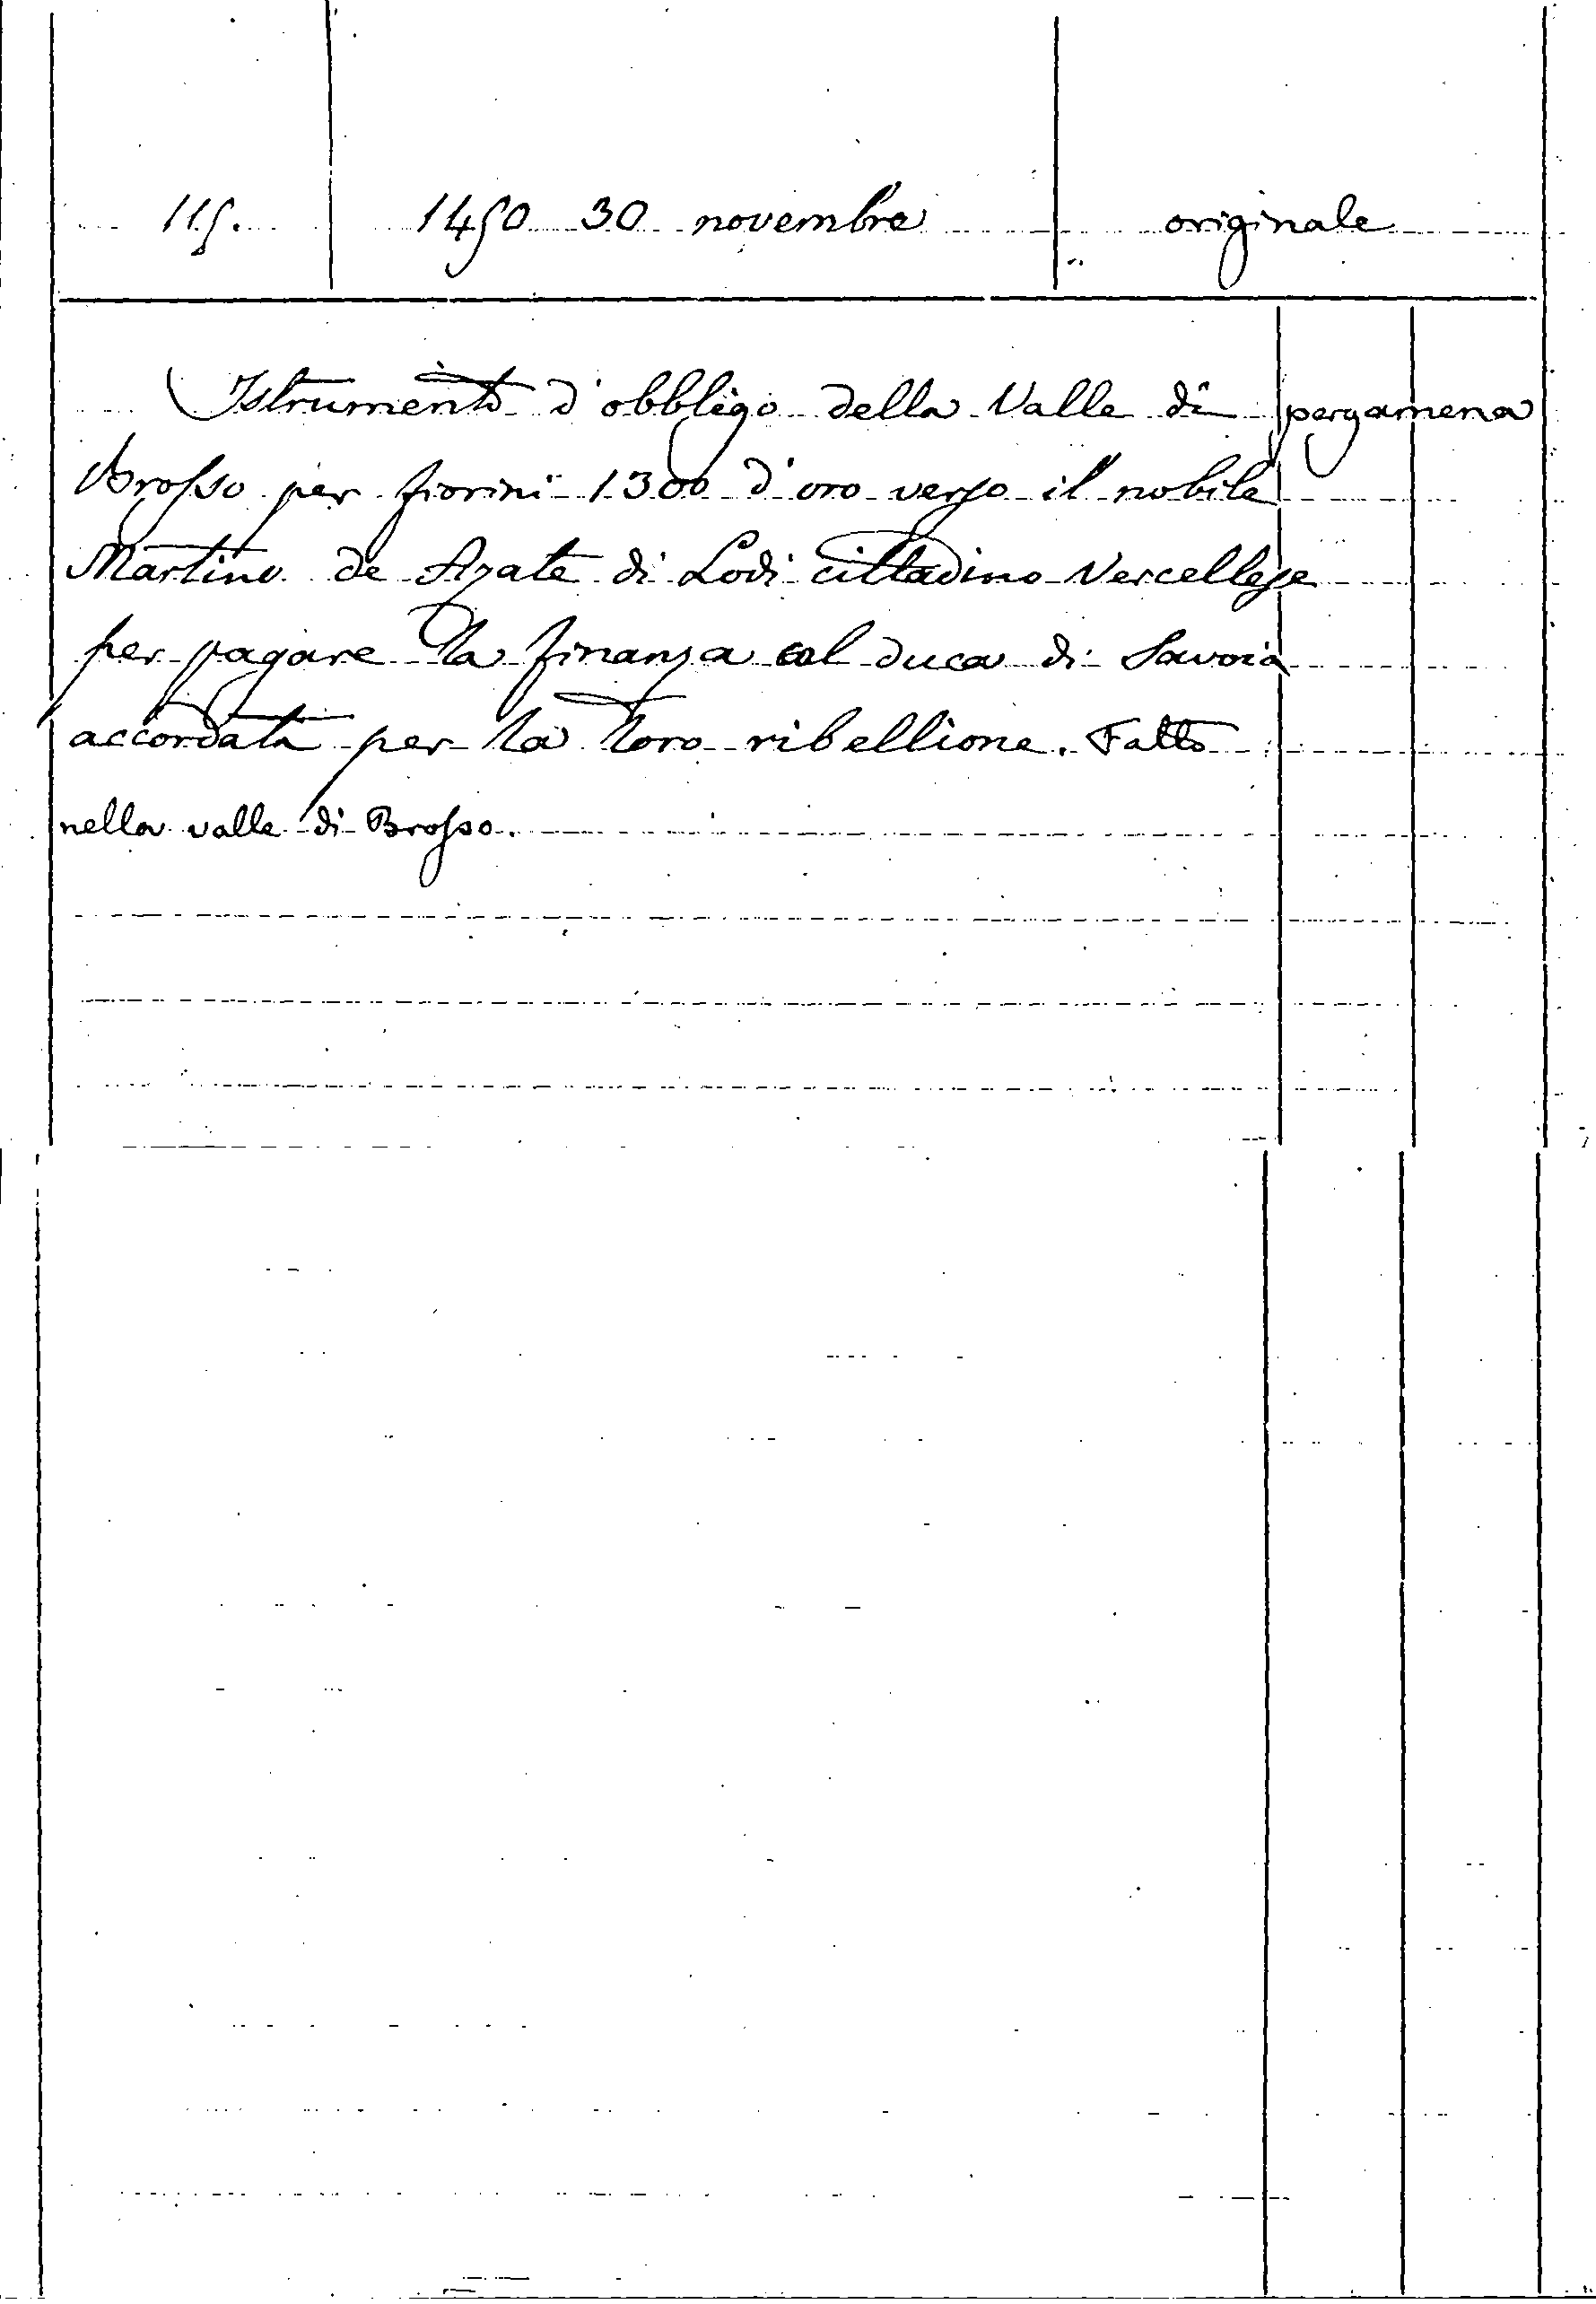 115. 1450 30 novembre originale
Istrumento d'obbligo della Valle di pergamena
Brosso per fiorini 1300 d'oro verso il nobile
Martino de Azate di Lodi cittadino Vercellese
per pagare la finanza al duca di Savoia
accordata per la loro ribellione. Fatto
nella valle di Brosso.